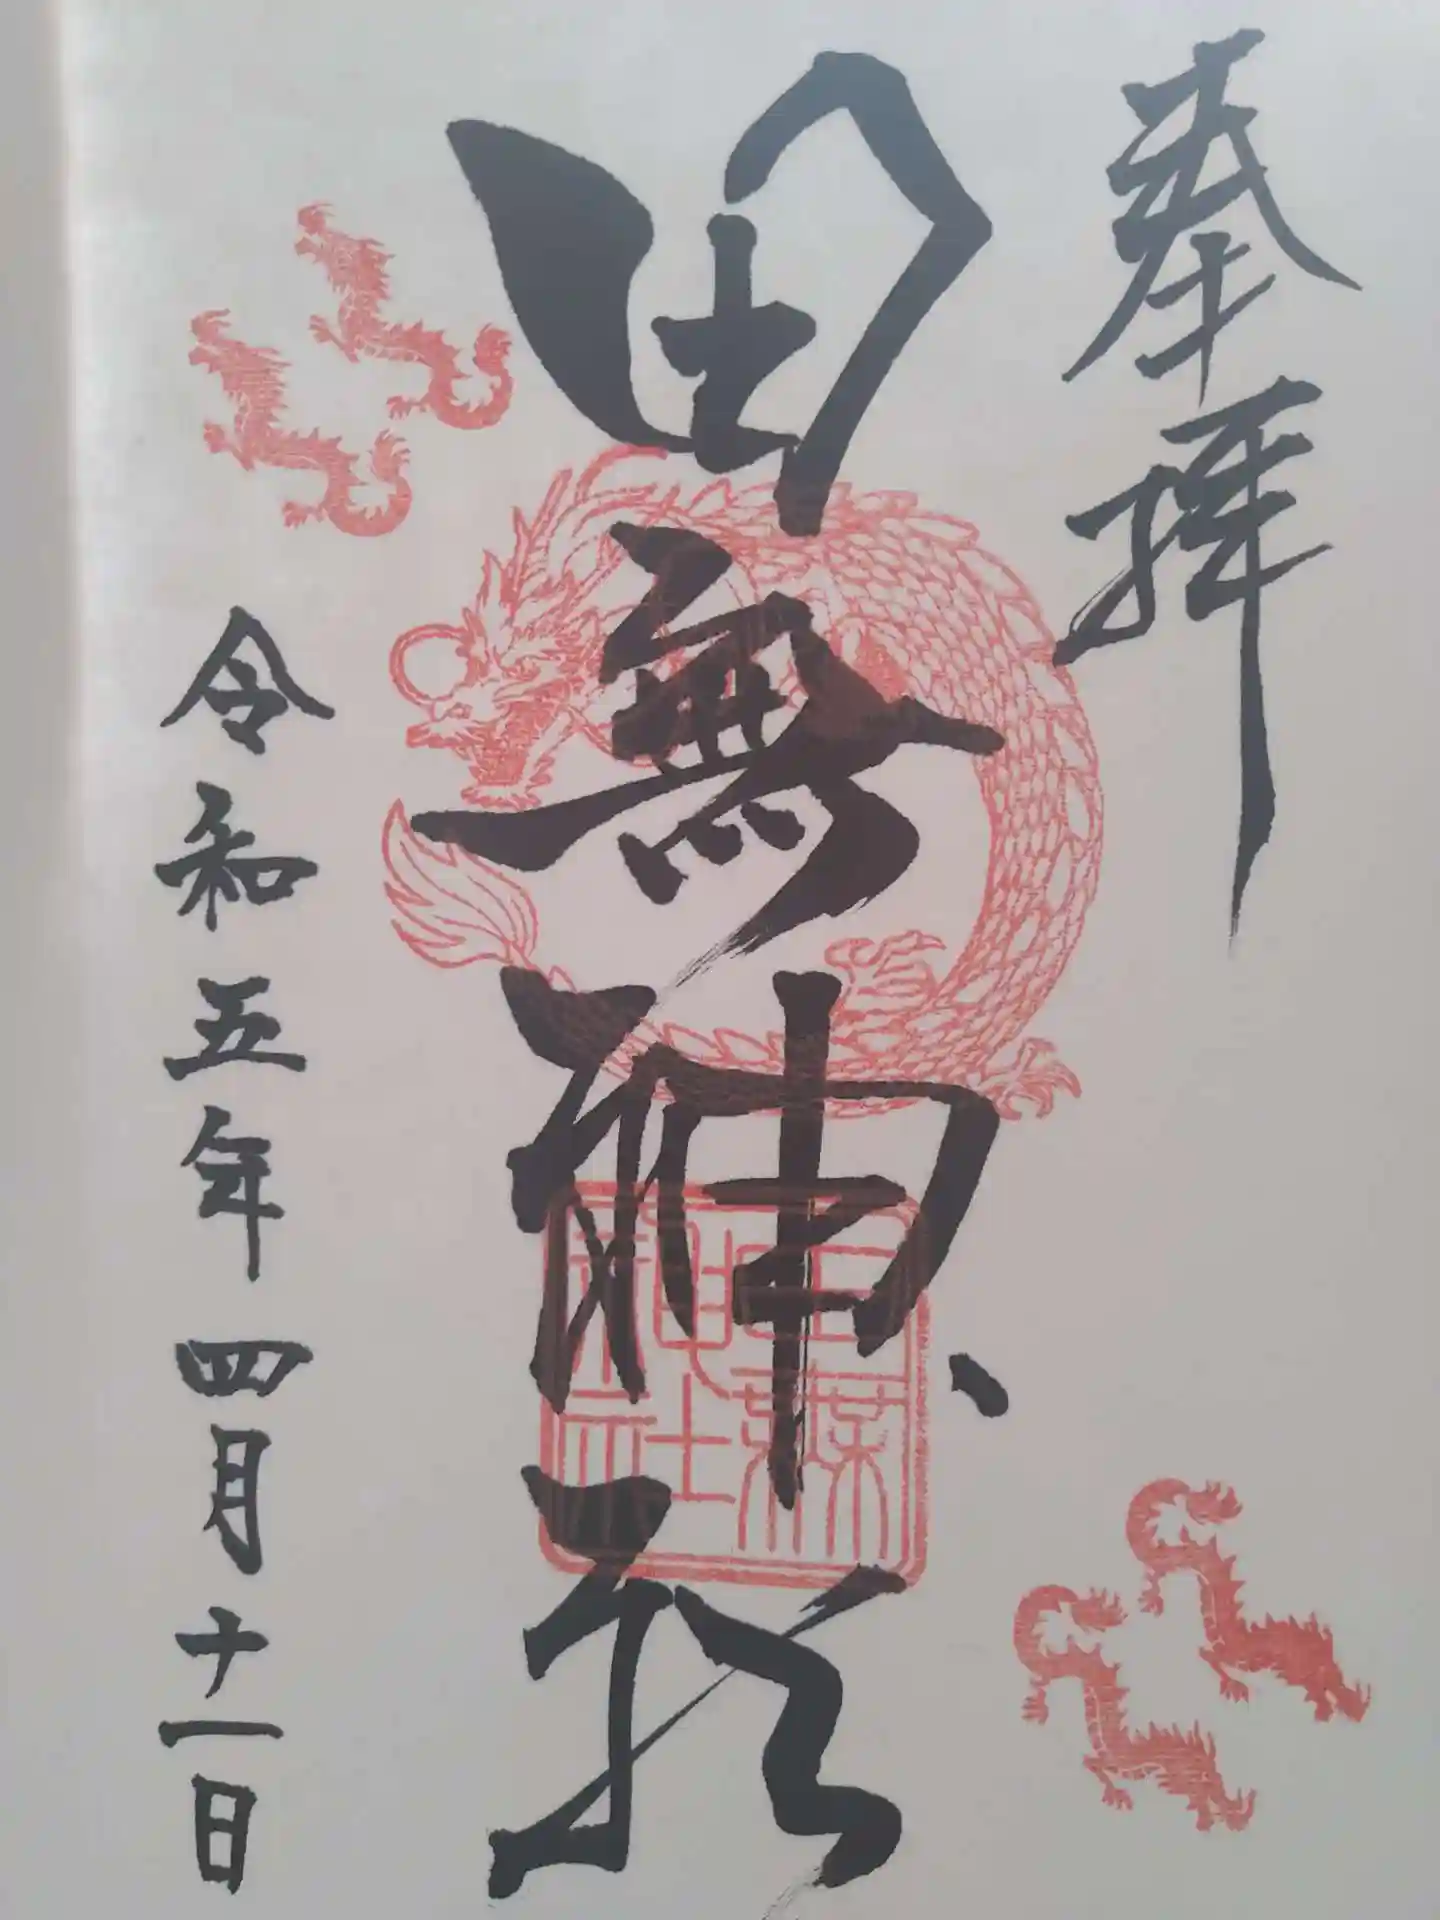 奉拝
田無神社
田無
神社
令和五年四月十一日